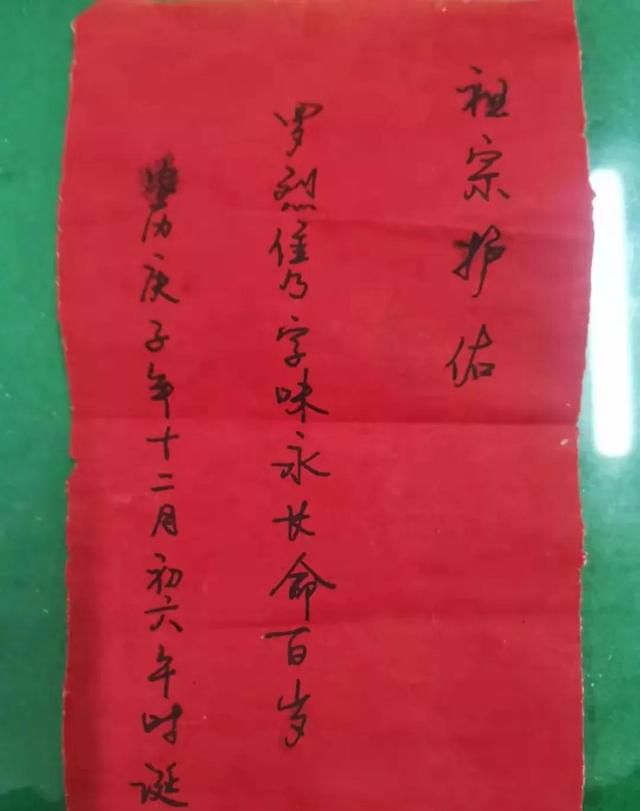 祖宗护佑
罗烈隽字味永长命百岁
农历庚子年十二月初六午时诞